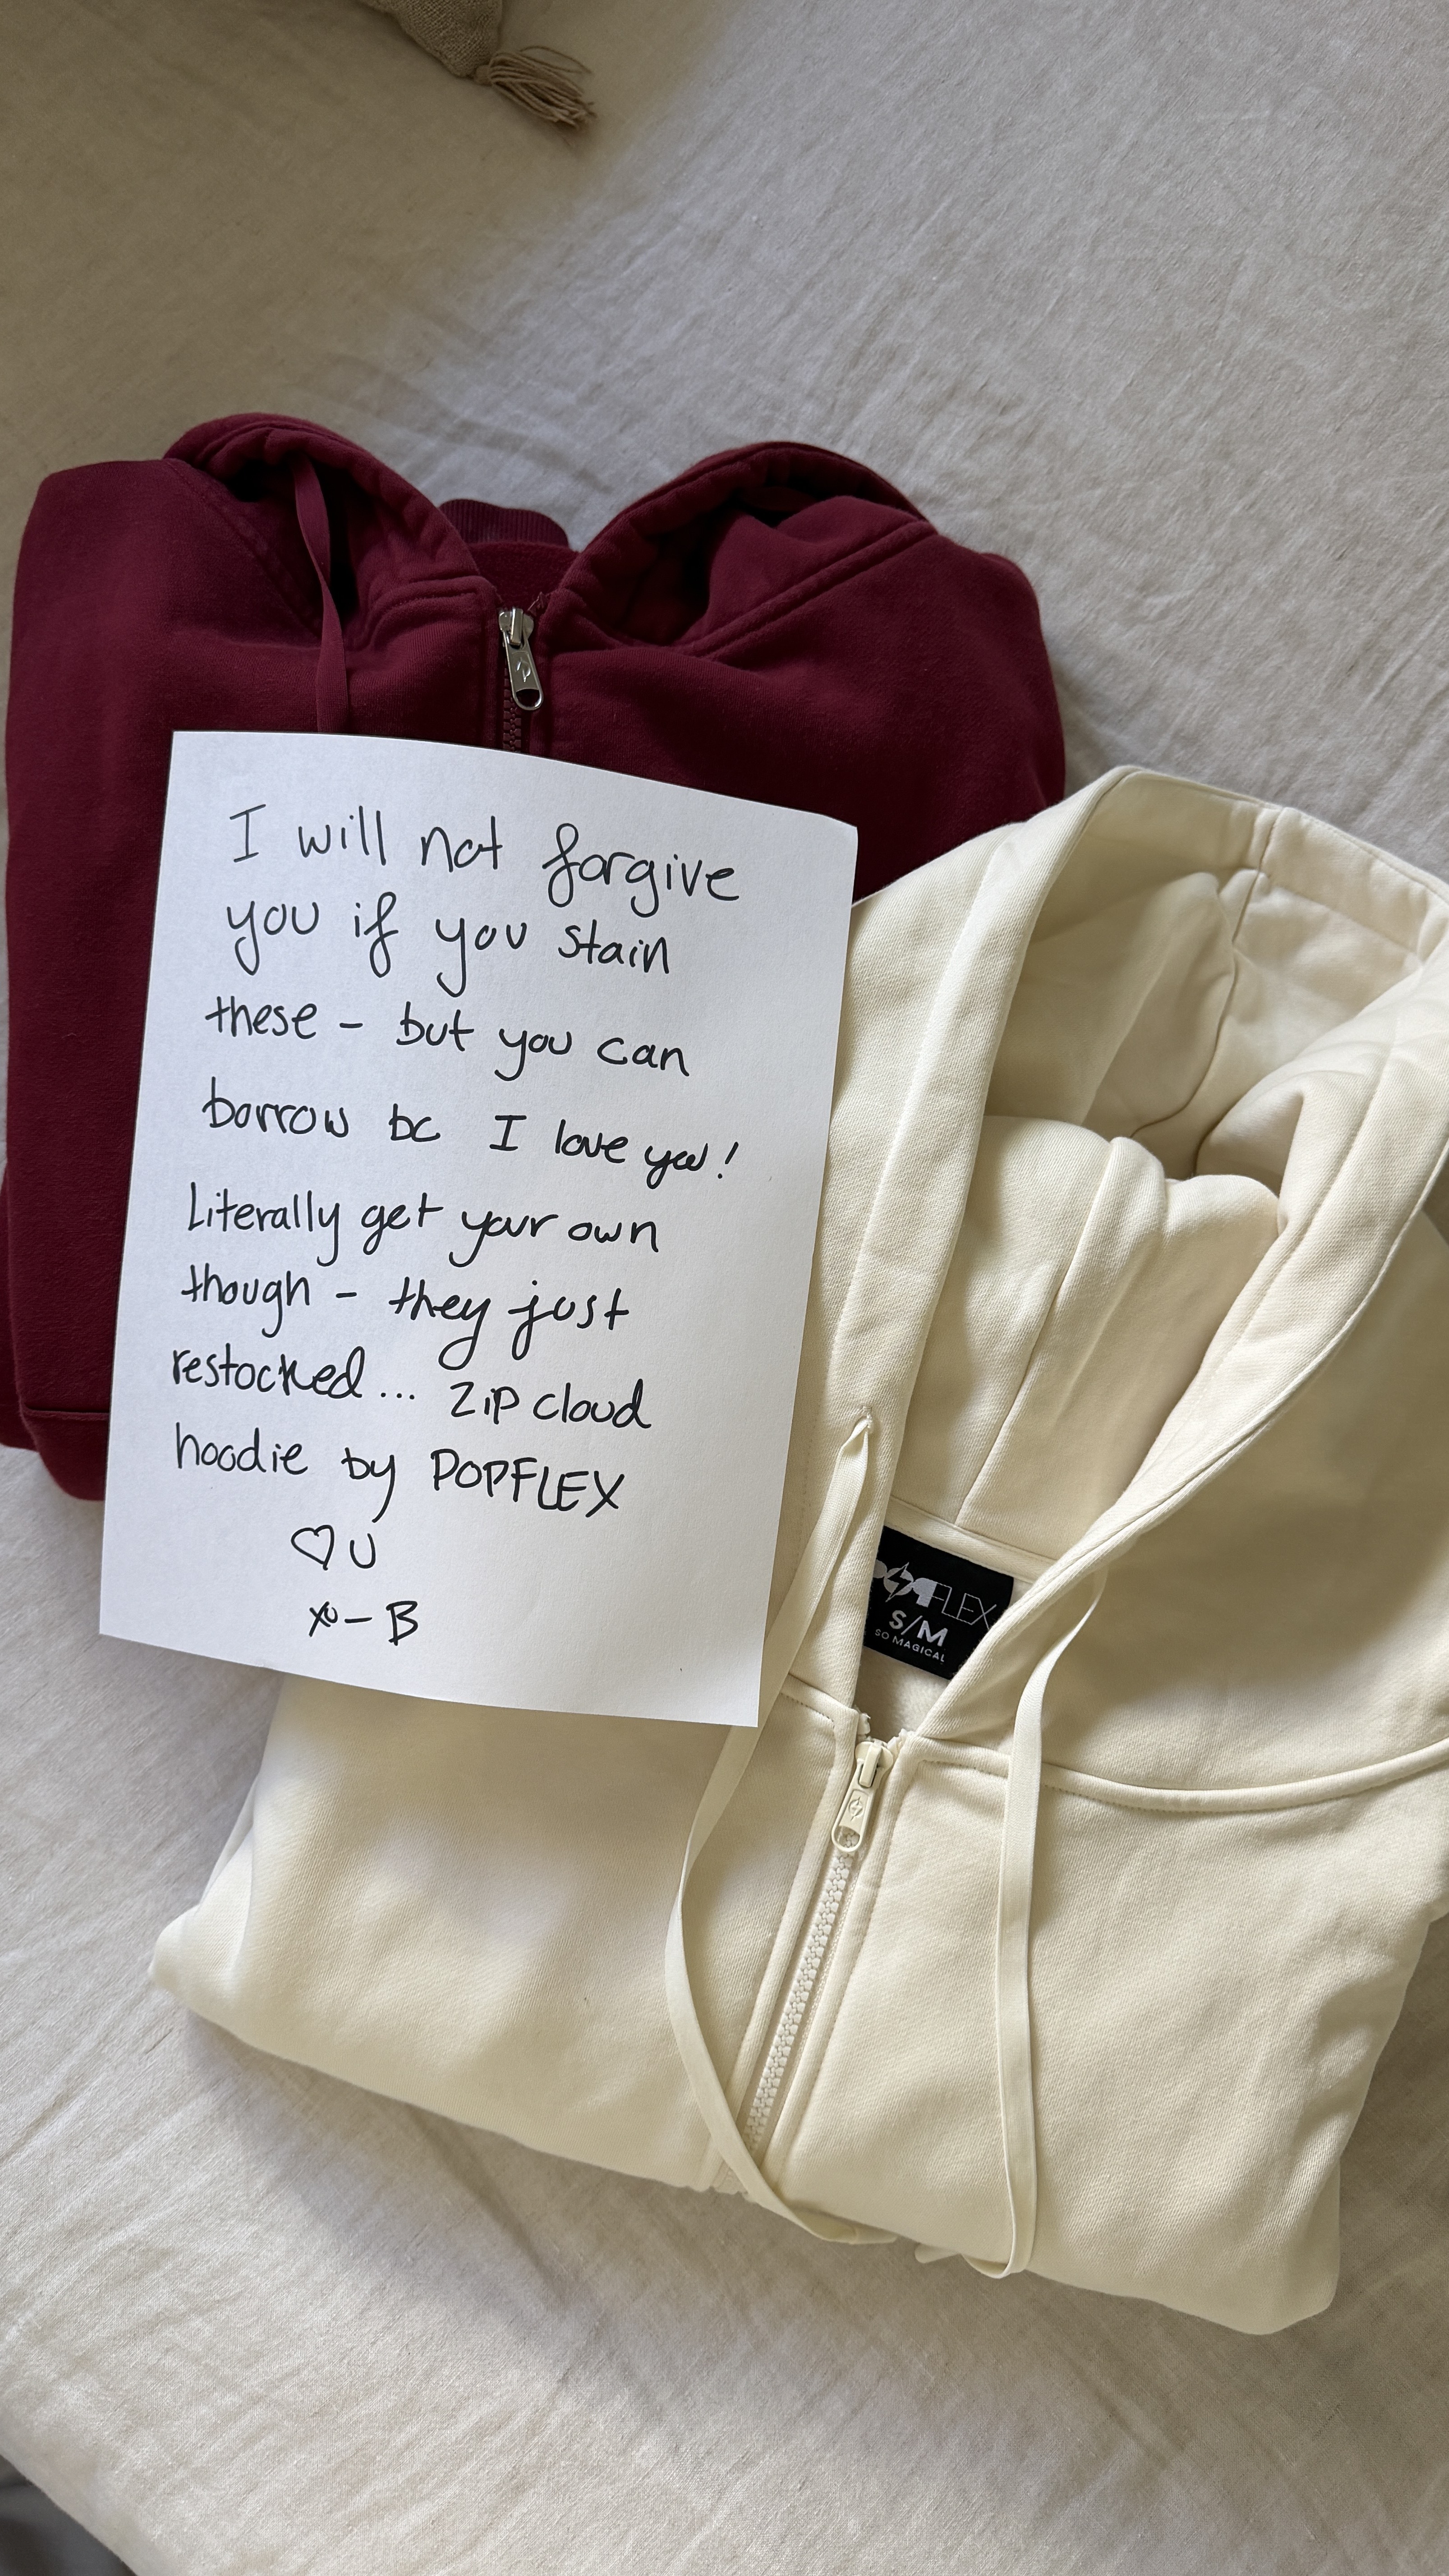 I will not forgive
you if you stain
these – but you can
borrow bc I love you!
Literally get your own
though – they just
restocked... Zip cloud
hoodie by POPFLEX
♡ U
xo – B
POPFLEX
S/M
SO MAGICAL